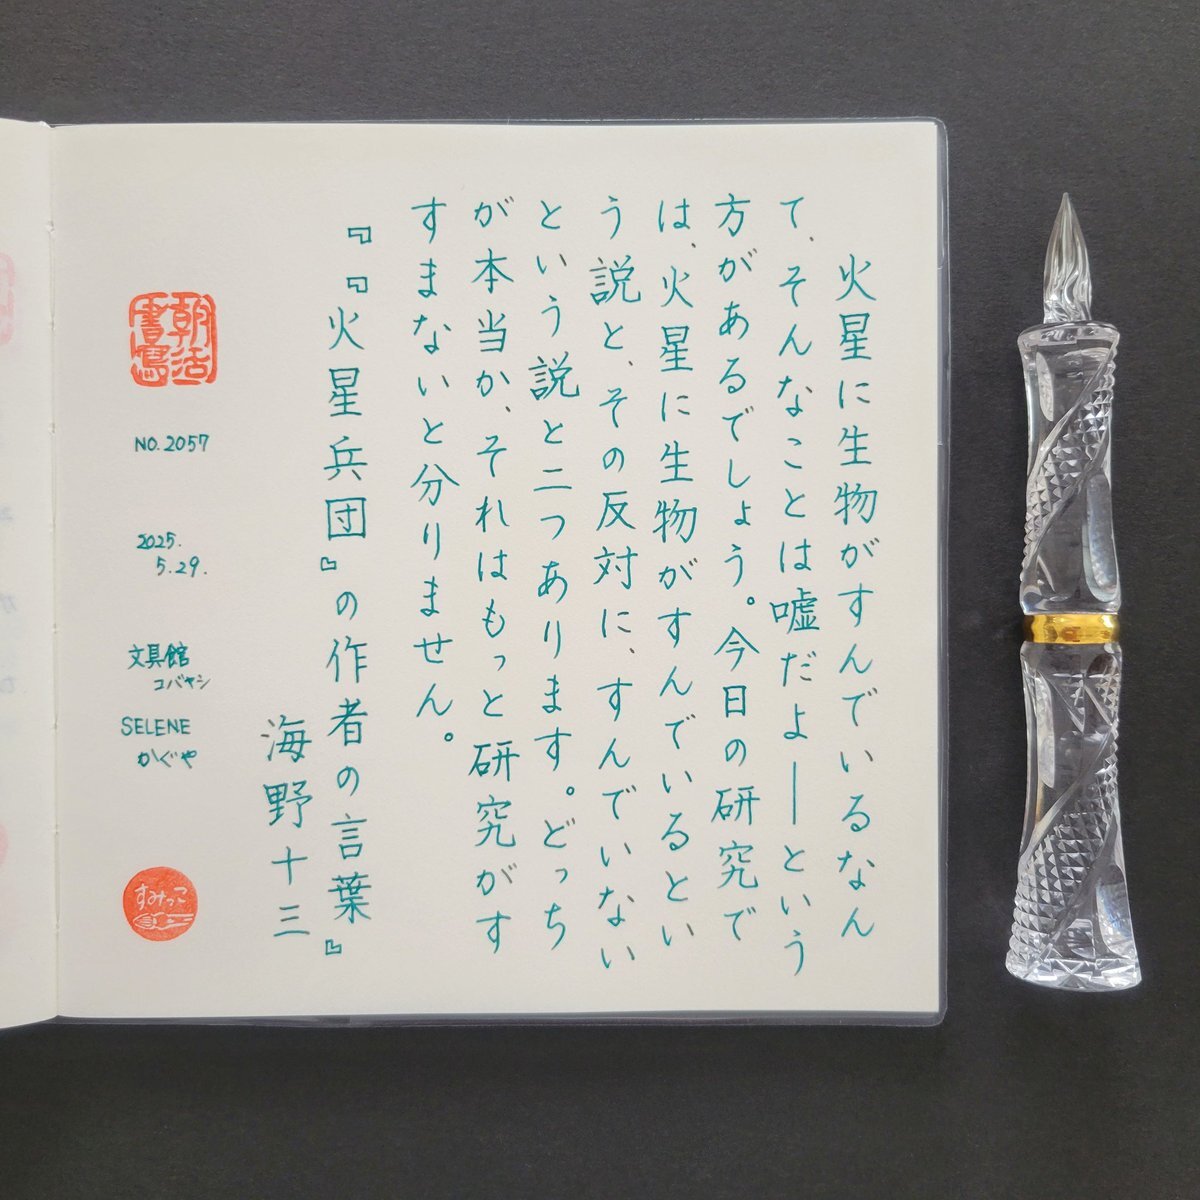 火星に生物がすんでいるなん
て、そんなことは嘘だよ――という
方があるでしょう。今日の研究で
は、火星に生物がすんでいるとい
う説と、その反対に、すんでいない
という説と二つあります。どっち
が本当か、それはもっと研究がす
すまないと分りません。
『『火星兵団』の作者の言葉』
海野十三
朝活
書写
NO.2057
2025.
5.29.
文具館
コバヤシ
SELENE
かぐや
すみっこ